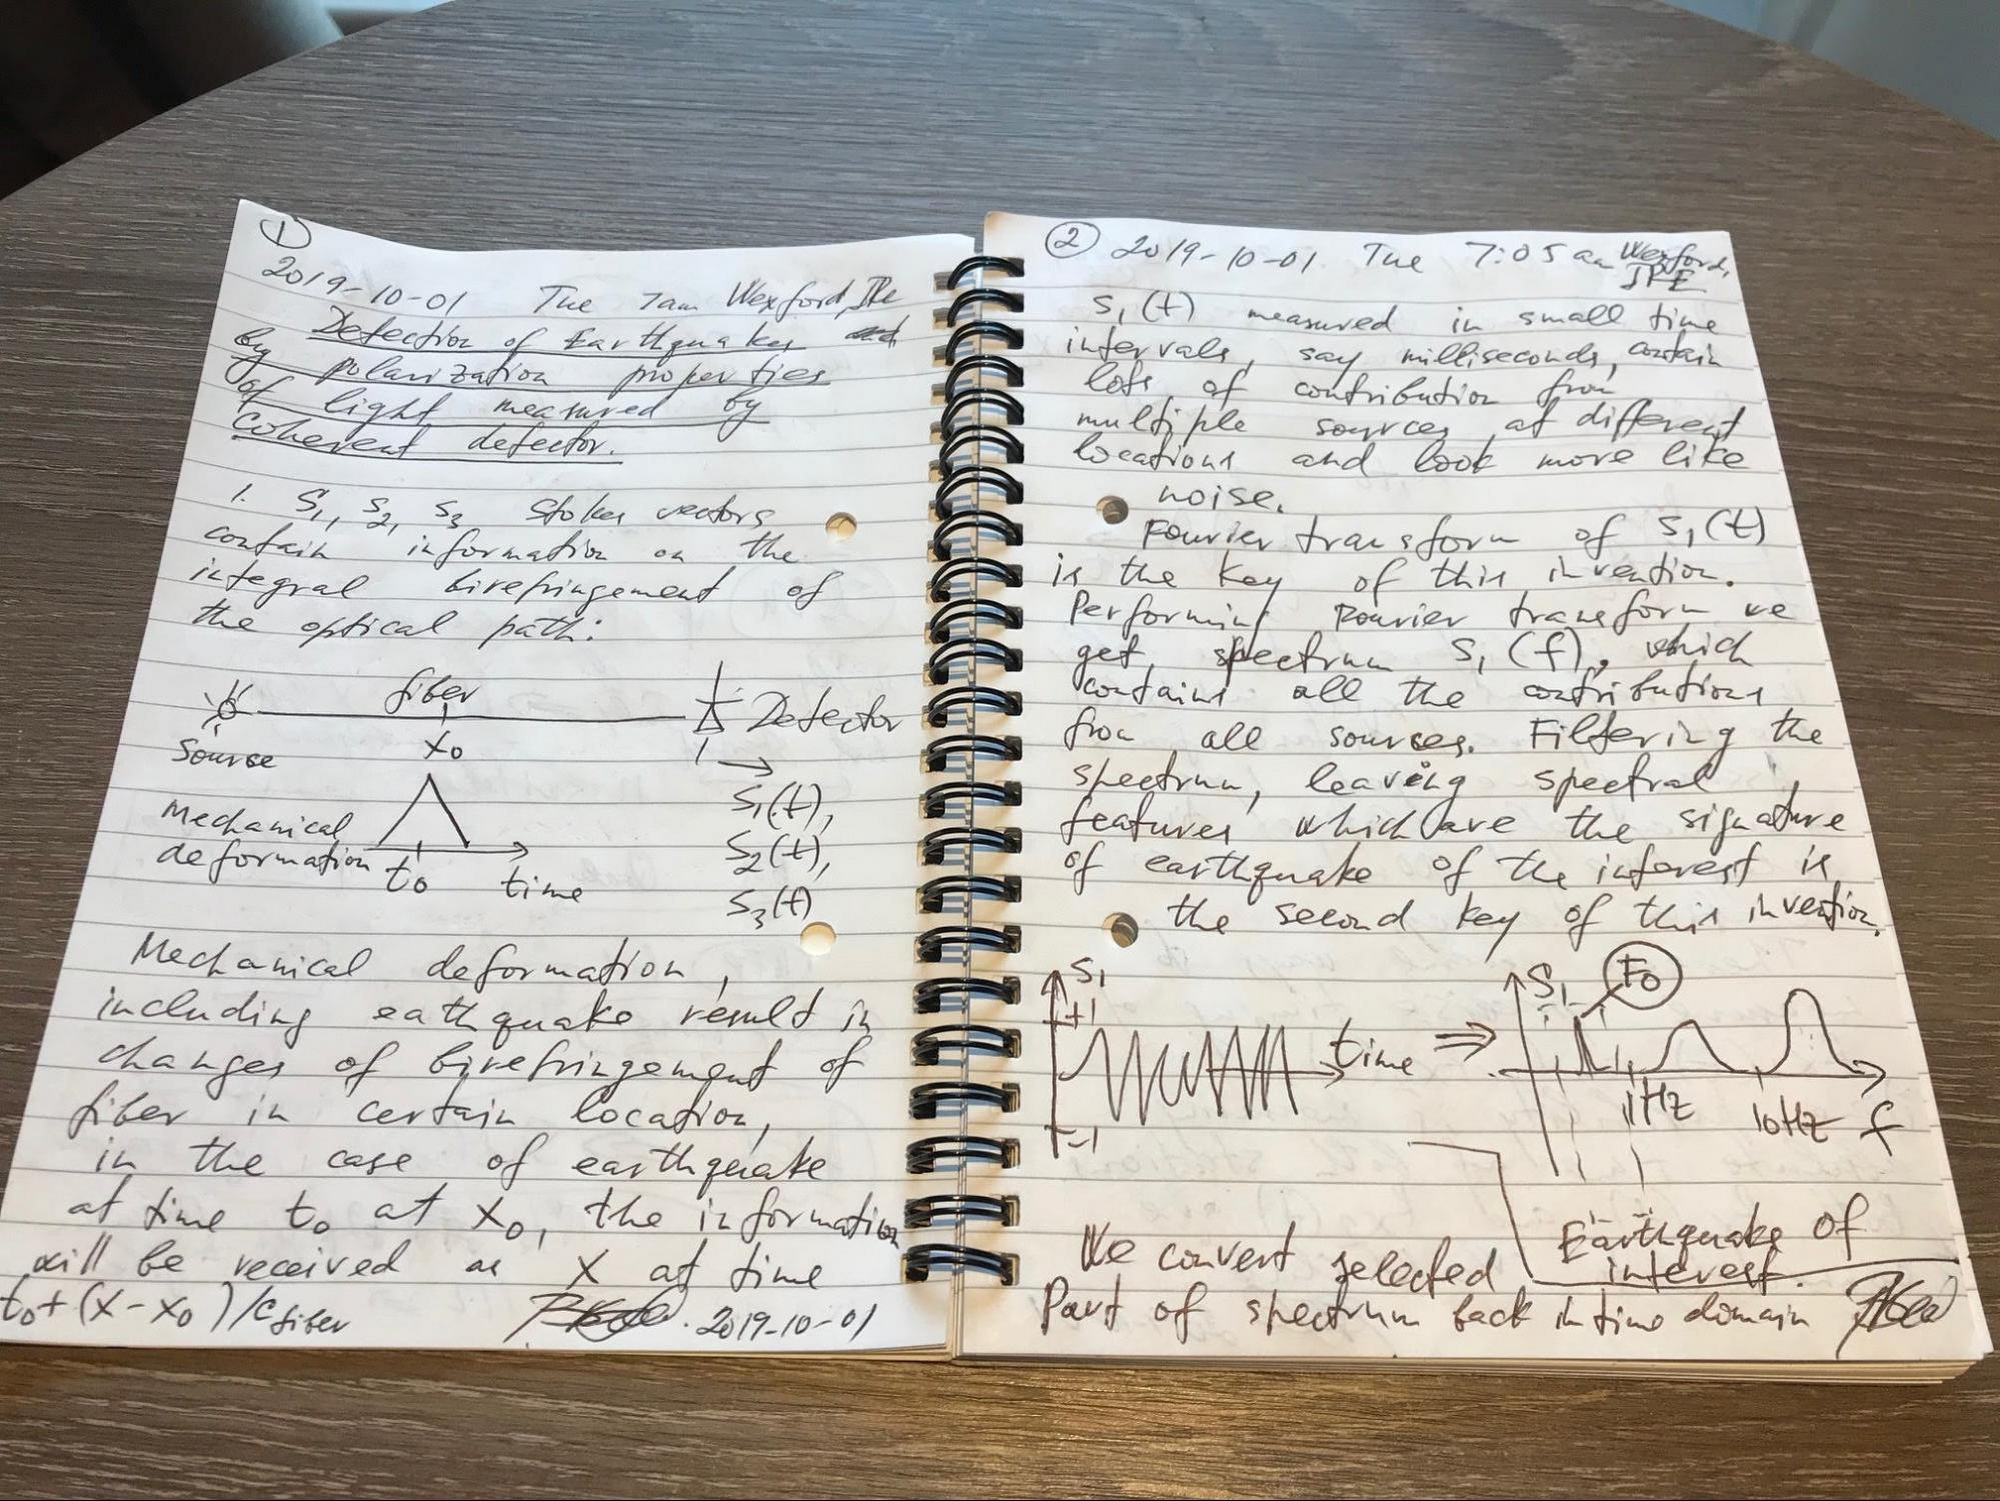 1
2019-10-01 Tue 7am Wexford, IRe
Detection of Earthquakes
by polarization properties
of light measured by
coherent detector.
1. S1, S2, S3 Stokes vectors
contain information on the
integral birefringement of
the optical path:
fiber
Detector
Source
x0
Mechanical
deformation
t0 time
S1(t),
S2(t),
S3(t)
Mechanical deformation,
including eathquake result in
changes of birefringement of
fiber in certain location,
in the case of earthquake
at time t0 at x0, the information
will be received as X at time
t0 + (x - x0)/cfiber
2019-10-01
2 2019-10-01 Tue 7:05 am Wexford,
IRE
S1(t) measured in small time
intervals, say milliseconds, contain
lots of contribution from
multiple sources at different
locations and look more like
noise.
Fourier transform of S1(t)
is the key of this invention.
Performing Fourier transform we
get spectrum S1(f), which
contains all the contributions
from all sources. Filtering the
spectrum, leaving spectral
features which are the signature
of earthquake of the interest is
the second key of this invention.
S1
+1
time ⇒
-1
S1
F0
1Hz
10Hz f
Earthquake of
interest.
We convert selected
Part of spectrum back in time domain